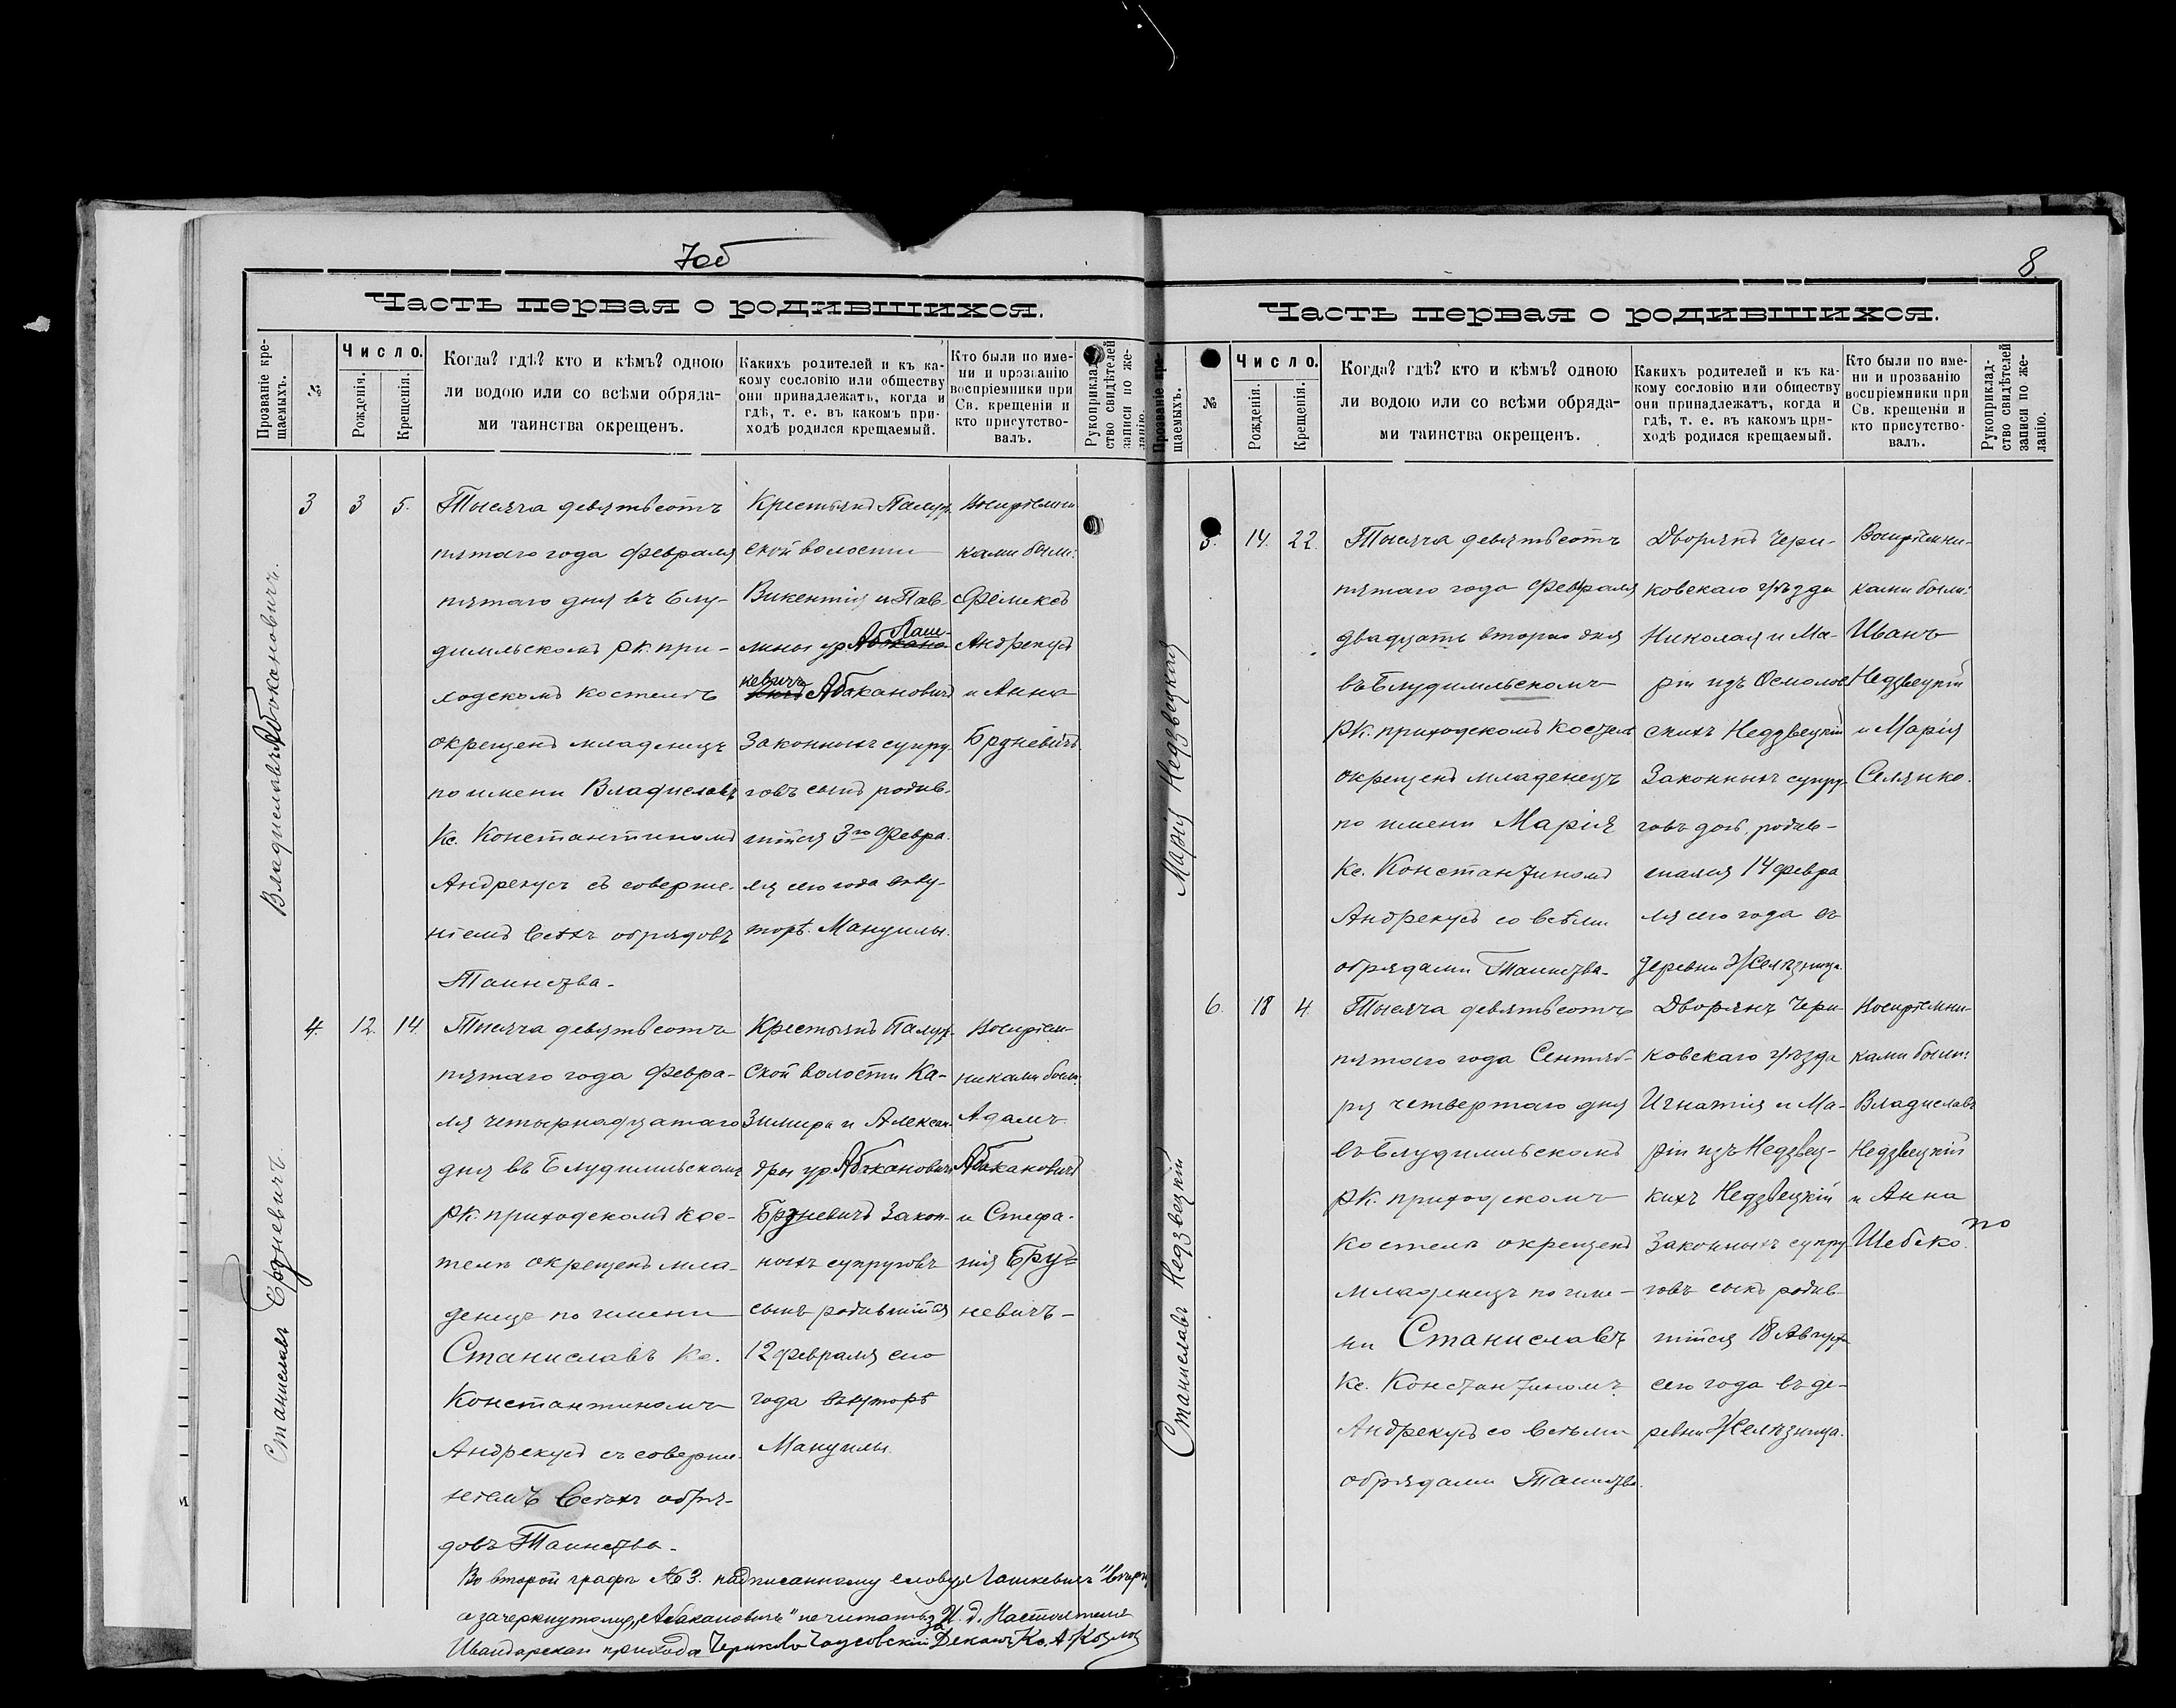 7об
Часть первая о родившихся.
Прозваніе кре-
щаемыхъ.
№
Число.
Рожденія.
Крещенія.
Когда? гдѣ? кто и кѣмъ? одною
ли водою или со всѣми обряда-
ми таинства окрещенъ.
Какихъ родителей и къ ка-
кому сословію или обществу
они принадлежатъ, когда и
гдѣ, т. е. въ какомъ при-
ходѣ родился крещаемый.
Кто были по име-
ни и прозванію
воспріемники при
Св. крещеніи и
кто присутство-
валъ.
Рукоприклад-
ство свидѣтелей
записи по же-
ланію.
Владиславъ Абокановичъ.
3
3
5.
Тысяча девятьсотъ
пятаго года февраля
пятаго дня въ Блу-
димльскомъ рк. при-
ходскомъ костелѣ
окрещенъ младенецъ
по имени Владиславъ
Кс. Константиномъ
Андрекусъ съ соверше-
ніемъ всѣхъ обрядовъ
Таинства.
Крестьянъ Палуж-
ской волости
Викентія и Пав-
лины ур. Абокано Паш-
кевичъ Абакановичъ
Законныхъ супру-
говъ сынъ родив-
шійся 3го февра-
ля сего года въ ху-
торѣ Мануилы.
Воспріемни
ками были:
Феликсъ
Андрекусъ
и Анна
Брдневичъ
Станиславъ Брдневичъ.
4.
12.
14.
Тысяча девятьсотъ
пятаго года февра-
ля четырнадцатаго
дня въ Блудимльскомъ
рк. приходскомъ кос-
телѣ окрещенъ мла-
денецъ по имени
Станиславъ Кс.
Константиномъ
Андрекусъ съ соверше-
ніемъ всѣхъ обря-
довъ Таинства.
Крестьянъ Палуж-
ской волости Ка-
зимира и Алексан-
дры ур. Абакановичъ
Брдневичъ Закон-
ныхъ супруговъ
сынъ родившійся
12 февраля сего
года въ хуторѣ
Мануилы.
Воспріем-
никами были
Адамъ
Абакановичъ
и Стефа-
нія Бруд-
невичъ
Во второй графѣ № 3. надписанному слову „Пашкевичъ" вѣрить
а зачеркнутому „Абакановичъ" не читать за И. д. Настоятеля
прихода Чериково Чаусовскій Деканъ Кс. А. Козлов
8
Часть первая о родившихся.
Прозваніе кре-
щаемыхъ.
№
Число.
Рожденія.
Крещенія.
Когда? гдѣ? кто и кѣмъ? одною
ли водою или со всѣми обряда-
ми таинства окрещенъ.
Какихъ родителей и къ ка-
кому сословію или обществу
они принадлежатъ, когда и
гдѣ, т. е. въ какомъ при-
ходѣ родился крещаемый.
Кто были по име-
ни и прозванію
воспріемники при
Св. крещеніи и
кто присутство-
валъ.
Рукоприклад-
ство свидѣтелей
записи по же-
ланію.
Марія Недзвецкая
5.
14.
22.
Тысяча девятьсотъ
пятаго года февраля
двадцать второго дня
въ Блудимльскомъ
РК. приходскомъ костелѣ
окрещенъ младенецъ
по имени Марія
Кс. Константиномъ
Андрекусъ со всѣми
обрядами Таинства.
Дворянъ Чери-
ковскаго уѣзда
Николая и Ма-
ріи изъ Осмолов
скихъ Недзвецкій
Законныхъ супру-
говъ дочь родив-
шаяся 14 февра
ля сего года въ
деревни Желѣзница.
Воспріемни-
ками были:
Иванъ
Недзвецкій
и Марія
Селянко.
Станиславъ Недзвецкій
6.
18
4.
Тысяча девятьсотъ
пятаго года Сентяб-
ря четвертаго дня
въ Блудимльскомъ
РК. приходскомъ
костелѣ окрещенъ
младенецъ по име-
ни Станиславъ
Кс. Константиномъ
Андрекусъ со всѣми
обрядами Таинства.
Дворянъ Чери-
ковскаго уѣзда
Игнатія и Ма-
ріи изъ Недзвец-
кихъ Недзвецкій
Законныхъ супру-
говъ сынъ родив-
шійся 18 Августа
сего года въ де-
ревни Желѣзница.
Воспріемни-
ками были:
Владиславъ
Недзвецкій
и Анна
Шебеко.